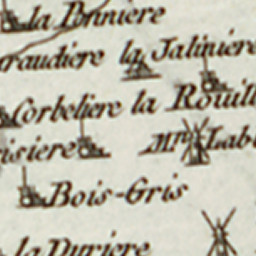 la Bnniere
raudiere la Jaliniere
Corbeliere la Rouill
isiere Min Lab
Bois-Gris
la Duriere